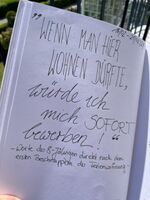 "WENN MAN HIER
WOHNEN DÜRFTE,
würde ich
mich SOFORT
bewerben!"
- Worte des 8-Jährigen direkt nach dem
ersten Beschnuppern der Ferienwohnung -